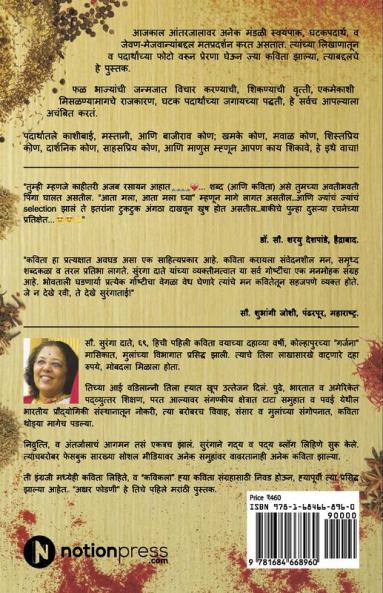 आजकाल आंतरजालावर अनेक मंडळी स्वयंपाक, घटकपदार्थ, व
जेवण-मेजवान्यांबद्दल मतप्रदर्शन करत असतात. त्यांच्या लिखाणातून
व पदार्थांच्या फोटो वरून प्रेरणा घेऊन ज्या कविता झाल्या, त्याबद्दलचे
हे पुस्तक.
फळ भाज्यांची जन्मजात विचार करण्याची, शिकण्याची वृत्ती, एकमेकाशी
मिसळण्यामागचे राजकारण, घटक पदार्थांच्या जगायच्या पद्धती, हे सर्वच आपल्याला
अचंबित करतं.
पदार्थातले काशीबाई, मस्तानी, आणि बाजीराव कोण; खमके कोण, मवाळ कोण, शिस्तप्रिय
कोण, दार्शनिक कोण, साहसप्रिय कोण, आणि माणुस म्हणून आपण काय शिकावे, हे इथे वाचा!
"तुम्ही म्हणजे काहीतरी अजब रसायन आहात ... शब्द (आणि कविता) असे तुमच्या अवतीभवती
पिंगा घालत असतील. "आता मला, आता मला घ्या" म्हणून मागे लागत असतील...आणि ज्यांचं ज्यांचं
selection झालं ते इतरांना टुकटुक अंगठा दाखवून खुष होत असतील...बाकीचे पुन्हा दुसऱ्या रचनेच्या
प्रतिक्षेत...
डॉ. सौ. शरयु देशपांडे, हैद्राबाद.
"कविता हा प्रत्यक्षात अवघड असा एक साहित्यप्रकार आहे. कविता करायला संवेदनशील मन, समृध्द
शब्दकळा व तरल प्रतिभा लागते. सुरंगा दाते यांच्या व्यक्तीमत्वात या सर्व गोष्टींचा एक मनमोहक संग्रह
आहे. भोवताली घडणार्या प्रत्येक गोष्टीचा वेगळा वेध घेणारे त्यांचे मन कवितेतून सहजपणे व्यक्त होते.
जे न देखे रवी, ते देखे सुरंगाताई!"
सौ. शुभांगी जोशी, पंढरपूर, महाराष्ट्र.
सौ. सुरंगा दाते, ६९, हिची पहिली कविता वयाच्या दहाव्या वर्षी, कोल्हापूरच्या "गर्जना"
मासिकात, मुलांच्या विभागात प्रसिद्ध झाली. त्याचे तिला लाखासारखे वाटणारे दहा
रुपये, मोबदला मिळाला होता.
तिच्या आई वडिलान्नी तिला ह्यात खुप उत्तेजन दिलं. पुढे, भारतात व अमेरिकेत
पदव्युत्तर शिक्षण, परत आल्यावर संगणकीय क्षेत्रात टाटा समुहात व पवई येथील
भारतीय प्रौद्योगिकी संस्थानातून नोकरी, त्या बरोबरच विवाह, संसार व मुलांच्या संगोपनात, कविता
थोड्या मागेच पडल्या.
निवृत्ति, व अंतर्जालाचं आगमन तसं एकत्रच झालं. सुरंगाने गद्य व पद्य ब्लॉग लिहिणे सुरू केले.
त्याचबरोबर फेसबुक सारख्या सोशल मीडियावर अनेक समुहांवर वावरतानाही अनेक कविता झाल्या.
ती इंग्रजी मध्येही कविता लिहिते, व "कविकला" ह्या कविता संग्रहासाठी निवड होऊन, ह्यापूर्वी त्या प्रसिद्ध
झाल्या आहेत. "अक्षर फोडणी" हे तिचे पहिले मराठी पुस्तक.
Price ₹460
ISBN 978-1-68466-896-0
90000
9 781684 668960
N notionpress
.com